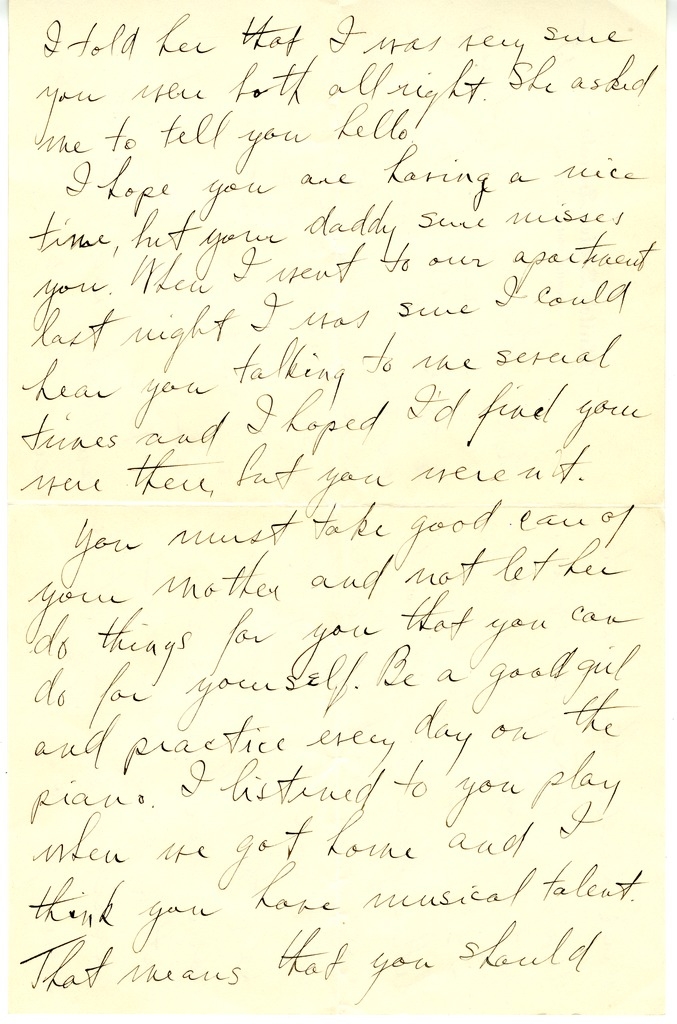 I told her that I was very sure
you were both all right. She asked
me to tell you hello
I hope you are having a nice
time, but your daddy sure misses
you. When I went to our apartment
last night I was sure I could
hear you talking to me several
times and I hoped I'd find your
were there, but you weren't.
You must take good care of
your mother and not let her
do things for you that you can
do for yourself. Be a good girl
and practice every day on the
piano. I listened to you play
when we got home and I
think you have musical talent.
That means that you should